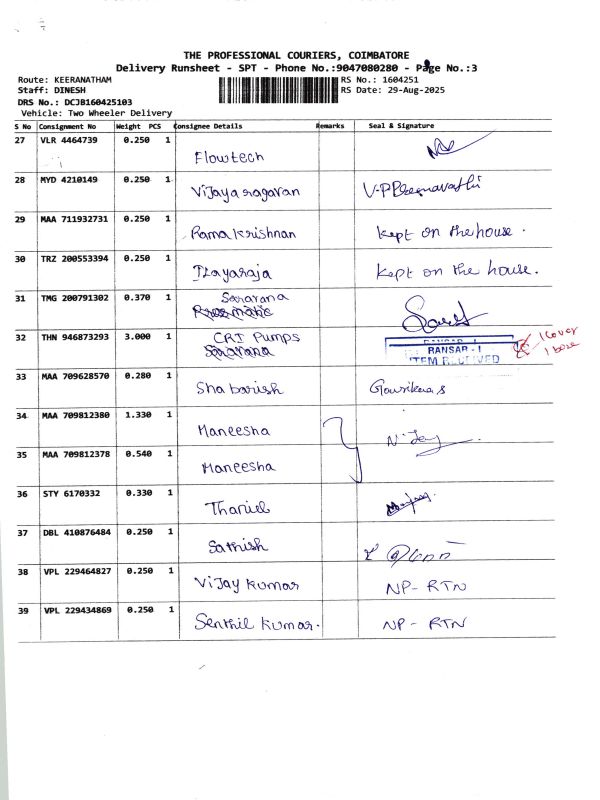 THE PROFESSIONAL COURIERS, COIMBATORE
Delivery Runsheet - SPT - Phone No.:9047080280 - Page No.:3
Route: KEERANATHAM RS No.: 1604251
Staff: DINESH RS Date: 29-Aug-2025
DRS No.: DCJB160425103
Vehicle: Two Wheeler Delivery
S No Consignment No Weight PCS Consignee Details Remarks Seal & Signature
27 VLR 4464739 0.250 1 Flowtech
28 MYD 4210149 0.250 1 Vijaya ragavan
29 MAA 711932731 0.250 1 Rama krishnan kept on the house.
30 TRZ 200553394 0.250 1 Ilayaraja kept on the house.
31 TMG 200791302 0.370 1 Saravana
32 THN 946873293 3.000 1 CRI Pumps RANSAR - I 1 cover
Saravana ITEM RECEIVED 1 box
33 MAA 709628570 0.280 1 Shabarish
34 MAA 709812380 1.330 1 Maneesha
35 MAA 709812378 0.540 1 Maneesha
36 STY 6170332 0.330 1 Thaniel
37 DBL 410876484 0.250 1 Sathish
38 VPL 229464827 0.250 1 Vijay kumar NP - RTN
39 VPL 229434869 0.250 1 Senthil kumar. NP - RTN